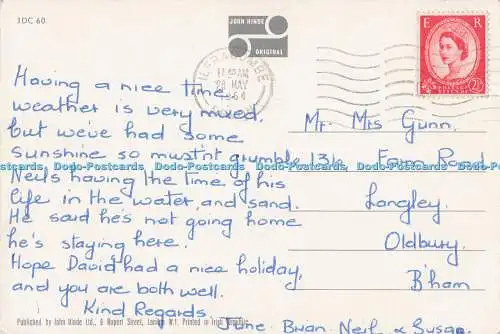 3DC 60
JOHN HINDE
ORIGINAL
ILFRACOMBE
28 MAY
E R
2½
Having a nice time,
weather is very mixed.
but we've had some
sunshine so mustn't grumble
Neils having the time of his
life in the water, and sand.
He said he's not going home
he's staying here.
Hope David had a nice holiday,
and you are both well.
Kind Regards.
June Brian Neil & Susan.
Mr. Mrs Gunn.
Farm Road
Langley
Oldbury
B'ham
Published by John Hinde Ltd., 6 Rupert Street, London W.1. Printed in Irish Republic
Dodo-Postcards Dodo-Postcards Dodo-Postcards Dodo-Postcards Dodo-Postcards